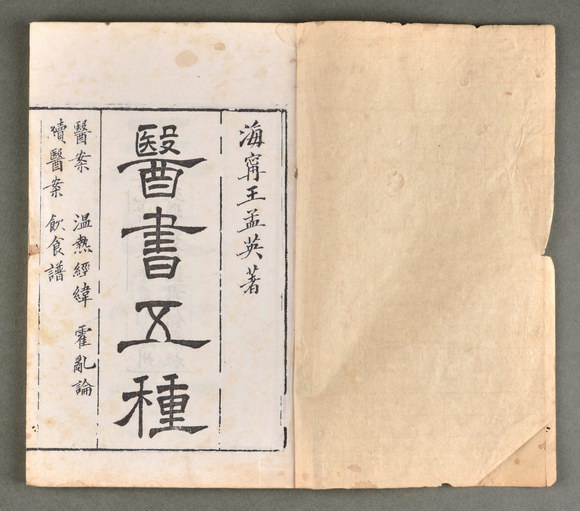 海甯王孟英著
醫書五種
醫案 温熱經緯 霍亂論
續醫案 飲食譜